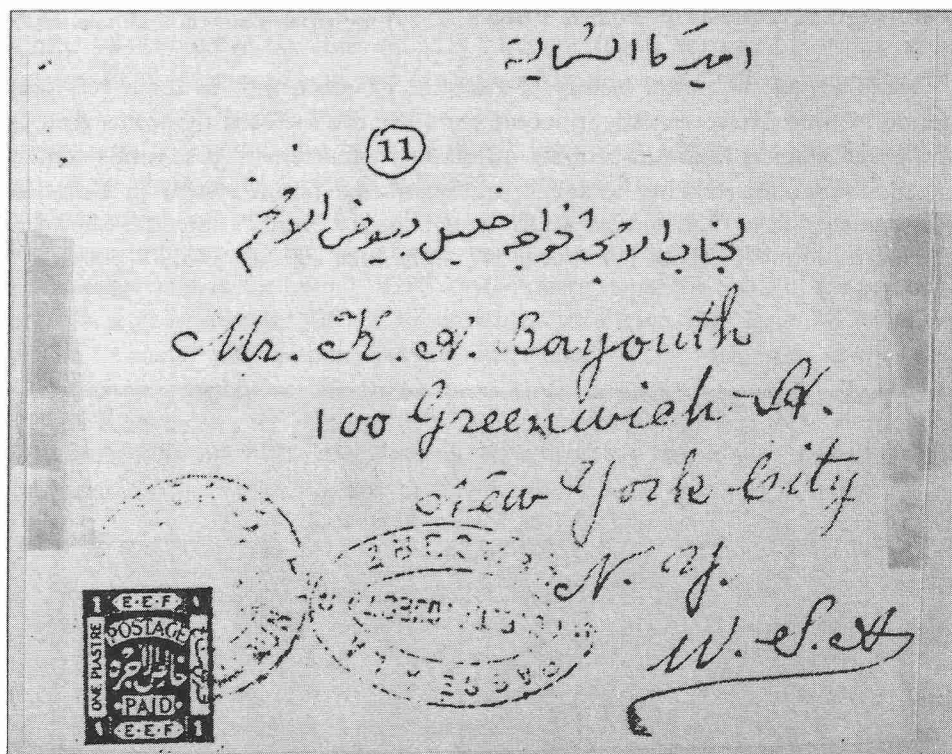 اميركا الشمالية
11
لجناب الامجد الخواجه خليل بيوض الافخم
Mr. K. A. Bayouth
100 Greenwich St.
New York City
N. Y.
U. S. A
1 E·E·F 1
POSTAGE
ONE PIASTRE
PAID
1 E·E·F 1